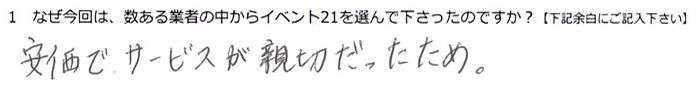 1 なぜ今回は、数ある業者の中からイベント21を選んで下さったのですか？【下記余白にご記入下さい】
安価で、サービスが親切だったため。